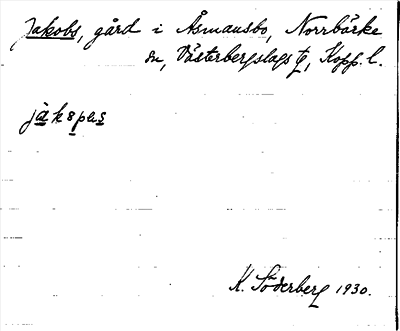 Jakobs, gård i Åsmansbo, Norrbärke
sn, Västerbergslags tg, Kopp. l.
K. Söderberg 1930.